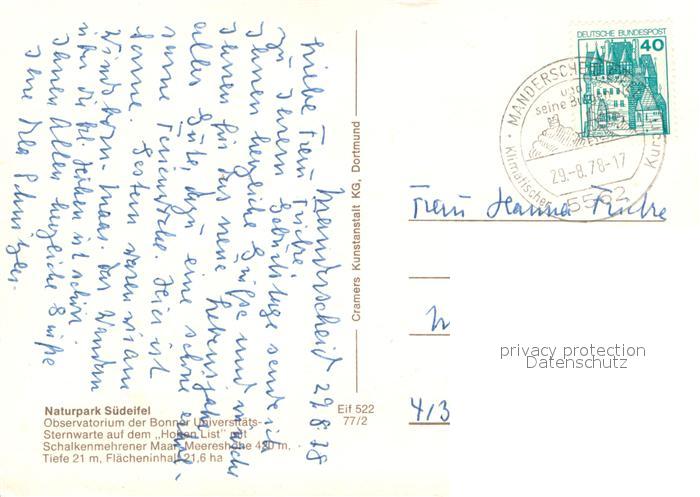 Manderscheid 29.8.78
Liebe Frau Fricke
Zu Ihrem Geburtstage sende ich
Ihnen herzliche Grüße und wünsche
Ihnen für das neue Lebensjahr
alles Gute, dazu eine schöne
Hier ist
Sonne. Gestern waren wir am
Windsborn-Maar. Das Wandern
in die Höhen ist schön.
Ihnen Allen herzliche Grüße
Ihre
DEUTSCHE BUNDESPOST
40
MANDERSCHEID
und
seine Burgen
29.-8.78-17
Klimatischer Kurort
5562
Frau Hanna Fricke
4/3
Cramers Kunstanstalt KG, Dortmund
Naturpark Südeifel
Observatorium der Bonner Universitäts-
Sternwarte auf dem „Hohen List" mit
Schalkenmehrener Maar, Meereshöhe 420 m.
Tiefe 21 m, Flächeninhalt 21,6 ha
Eif 522
77/2
privacy protection
Datenschutz